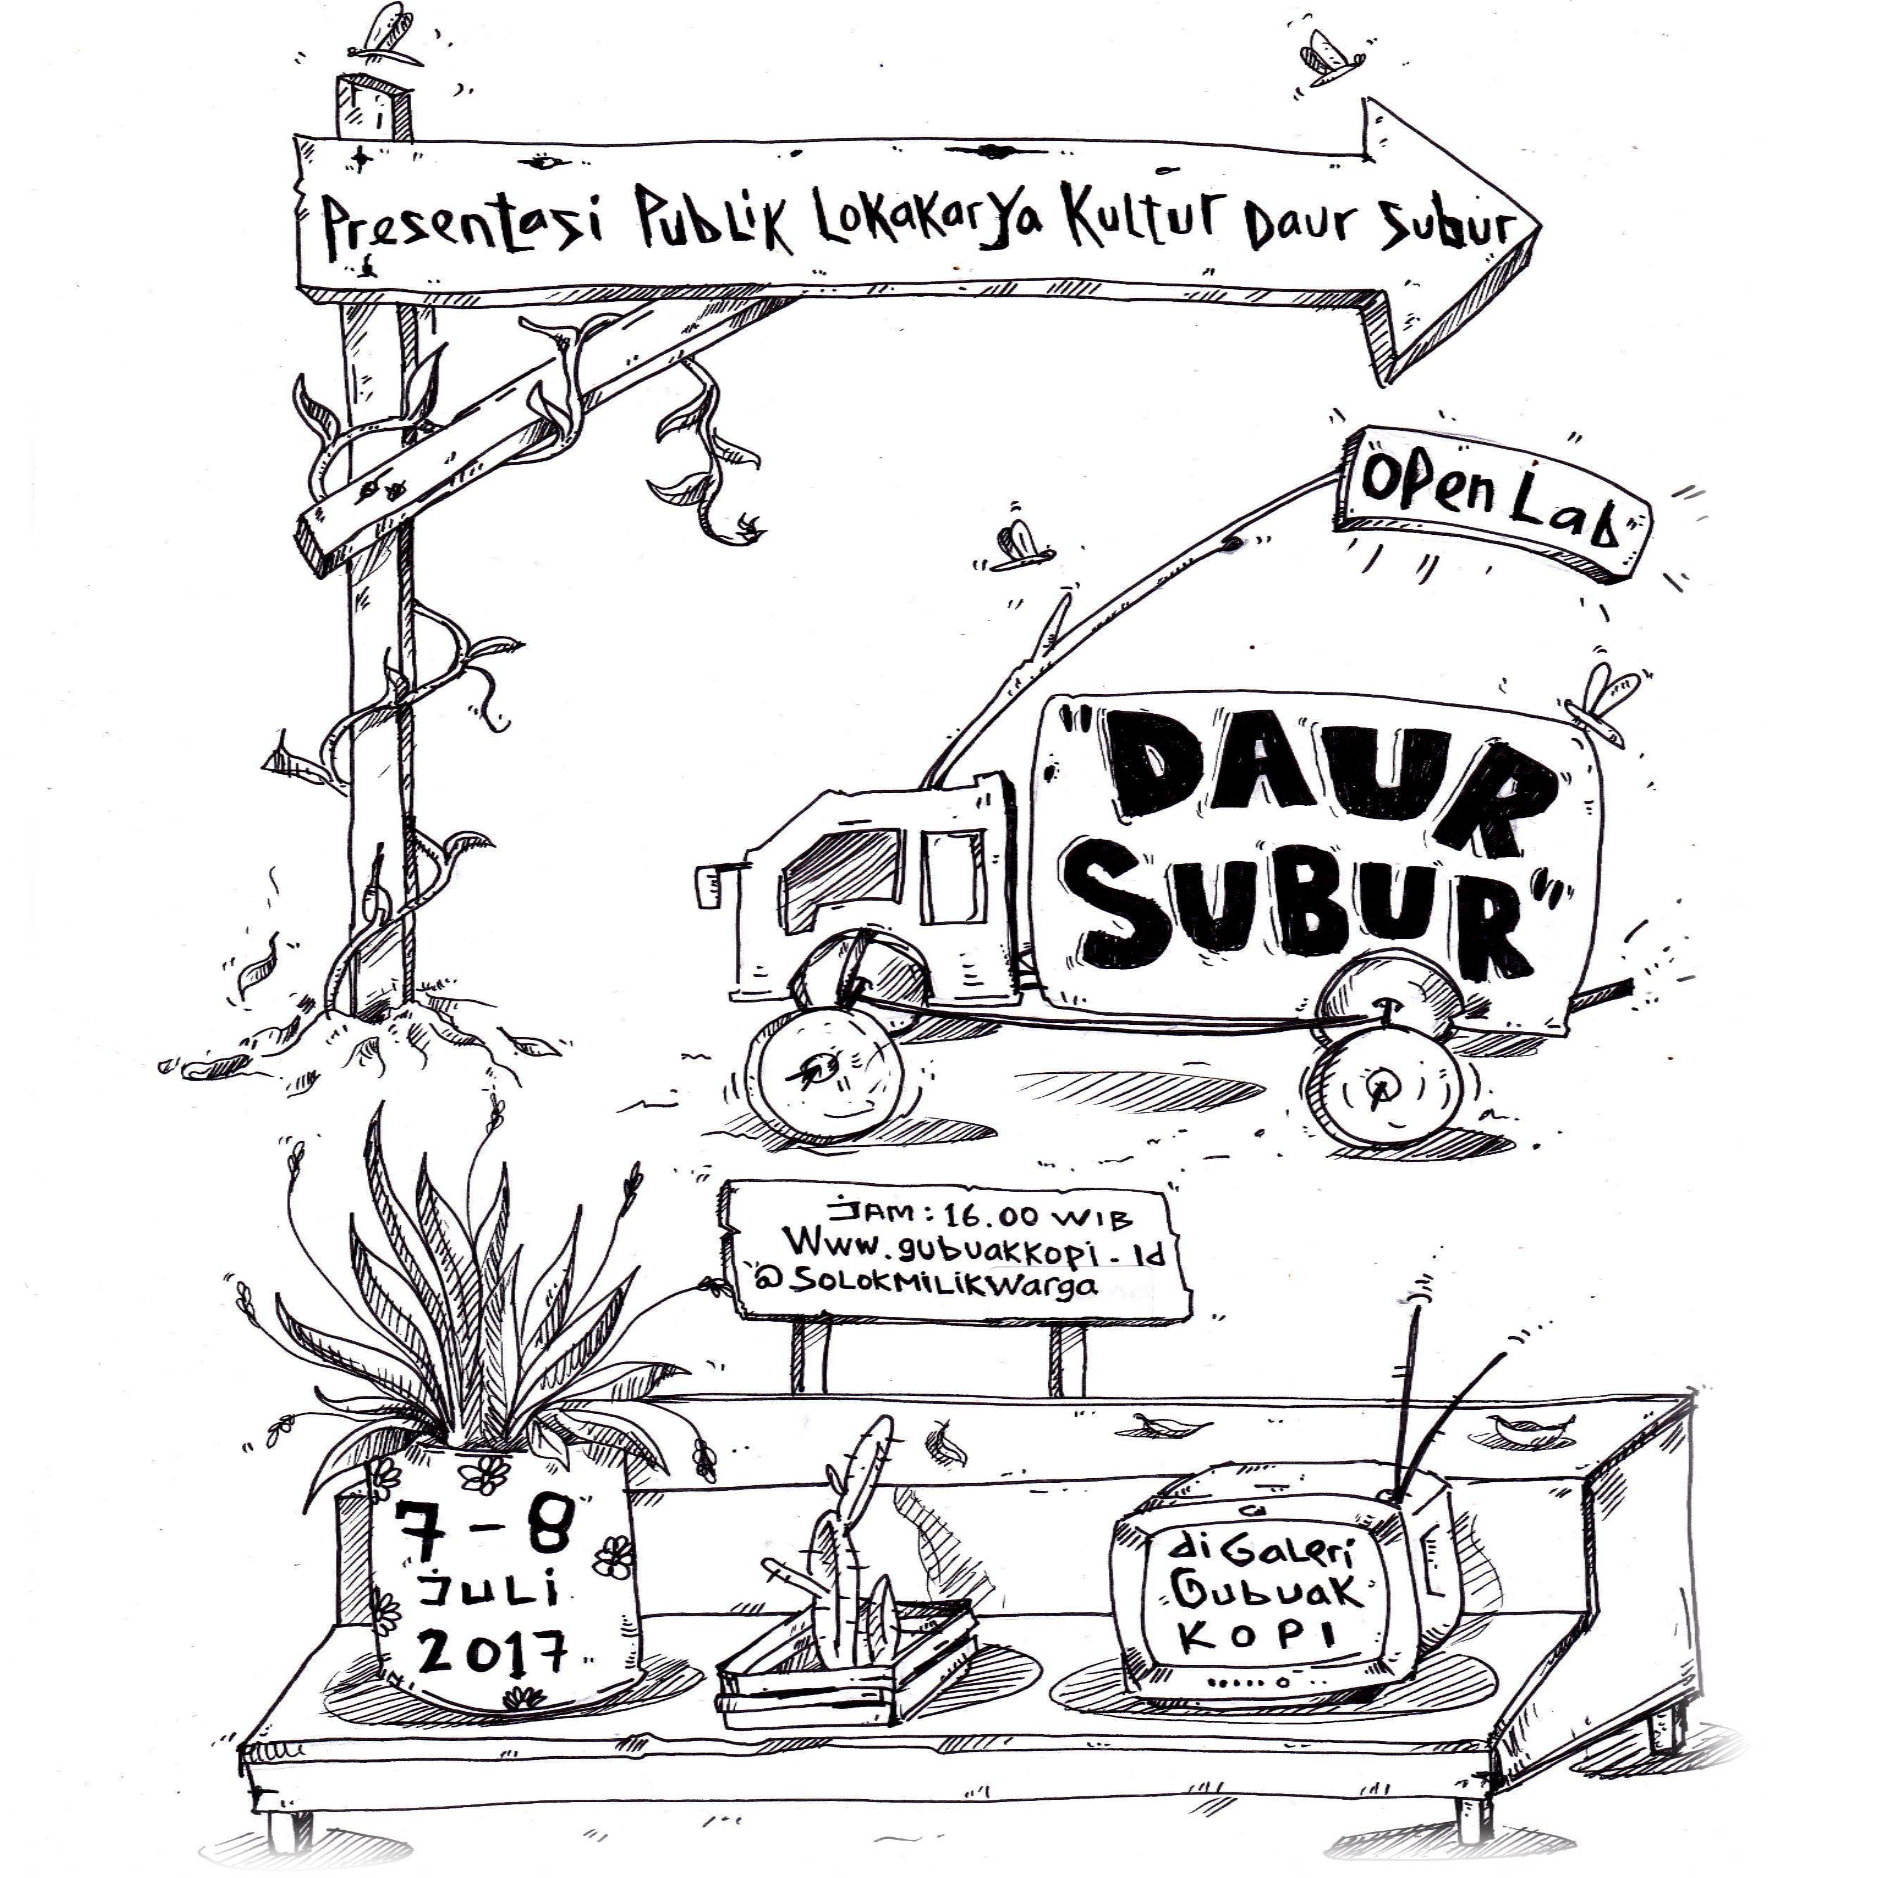 Presentasi Publik Lokakarya Kultur Daur Subur
Open Lab
"DAUR
SUBUR"
JAM: 16.00 WIB
Www.gubuakkopi.id
@SOLOKMILIKWarga
7-8
JULI
2017
di Galeri
Gubuak
KOPI